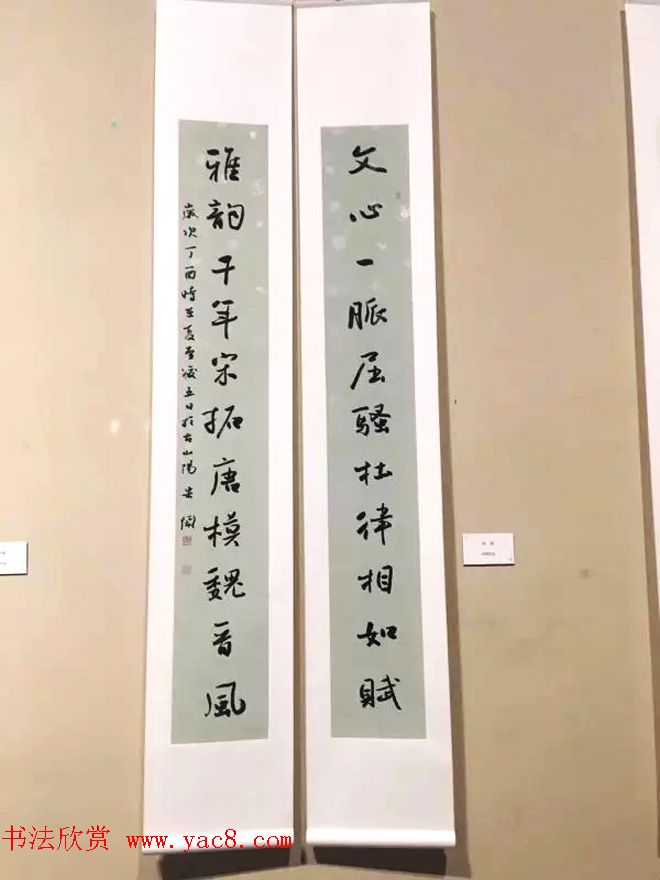 文心一脈屈騷杜律相如賦
雅韵千年宋拓唐模魏晋風
歲次丁酉時在夏至後五日於古山陽
书法欣赏 www.yac8.com